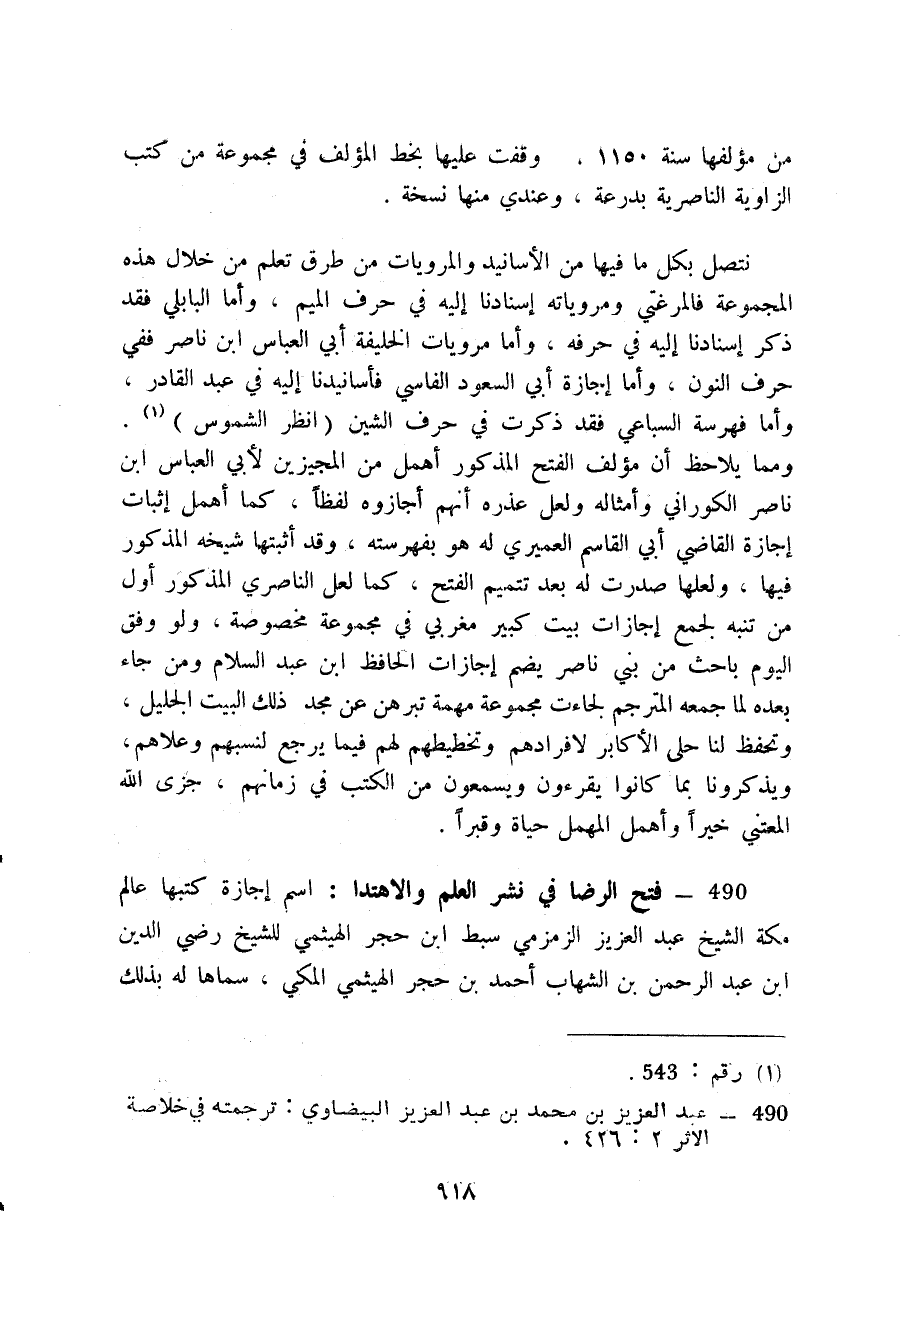 من مؤلفها سنة ١١٥٠ ، وقفت عليها بخط المؤلف في مجموعة من كتب
الزاوية الناصرية بدرعة ، وعندي منها نسخة .
نتصل بكل ما فيها من الأسانيد والمرويات من طرق تعلم من خلال هذه
المجموعة فالمرغتي ومروياته إسنادنا إليه في حرف الميم ، وأما البابلي فقد
ذكر إسنادنا إليه في حرفه ، وأما مرويات الخليفة أبي العباس ابن ناصر ففي
حرف النون ، وأما إجازة أبي السعود الفاسي فأسانيدنا إليه في عبد القادر ،
وأما فهرسة السباعي فقد ذكرت في حرف الشين ( انظر الشموس ) (١) .
ومما يلاحظ أن مؤلف الفتح المذكور أهمل من المجيزين لأبي العباس ابن
ناصر الكوراني وأمثاله ولعل عذره أنهم أجازوه لفظاً ، كما أهمل إثبات
إجازة القاضي أبي القاسم العميري له هو بفهرسته ، وقد أثبتها شيخه المذكور
فيها ، ولعلها صدرت له بعد تتميم الفتح ، كما لعل الناصري المذكور أول
من تنبه لجمع إجازات بيت كبير مغربي في مجموعة مخصوصة ، ولو وفق
اليوم باحث من بني ناصر يضم إجازات الحافظ ابن عبد السلام ومن جاء
بعده لما جمعه المترجم لجاءت مجموعة مهمة تبرهن عن مجد ذلك البيت الجليل ،
وتحفظ لنا حلى الأكابر لافرادهم وتخطيطهم لهم فيما يرجع لنسبهم وعلاهم ،
ويذكرونا بما كانوا يقرءون ويسمعون من الكتب في زمانهم ، جزى الله
المعتني خيراً وأهمل المهمل حياة وقبراً .
490 ــ فتح الرضا في نشر العلم والاهتدا : اسم إجازة كتبها عالم
مكة الشيخ عبد العزيز الزمزمي سبط ابن حجر الهيثمي للشيخ رضي الدين
ابن عبد الرحمن بن الشهاب أحمد بن حجر الهيثمي المكي ، سماها له بذلك
(١) رقم : 543 .
490 ــ عبد العزيز بن محمد بن عبد العزيز البيضاوي : ترجمته في خلاصة
الاثر ٢ : ٤٢٦ .
٩١٨